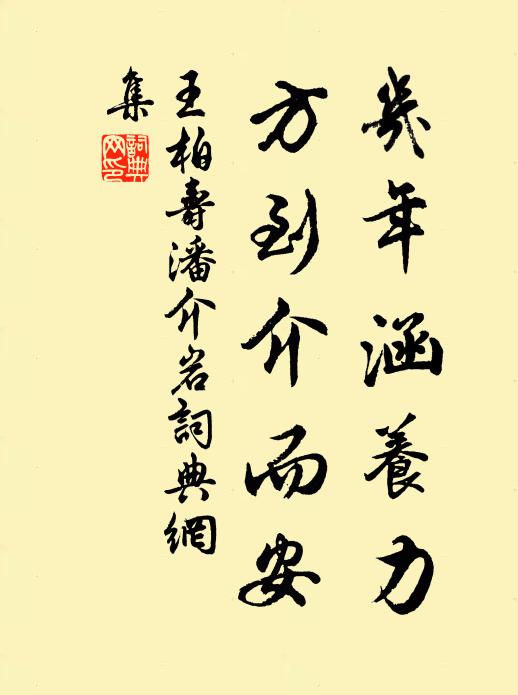 幾年涵養力
方到介而安
王柏壽潘介岩詞典網
集
詞典
网印